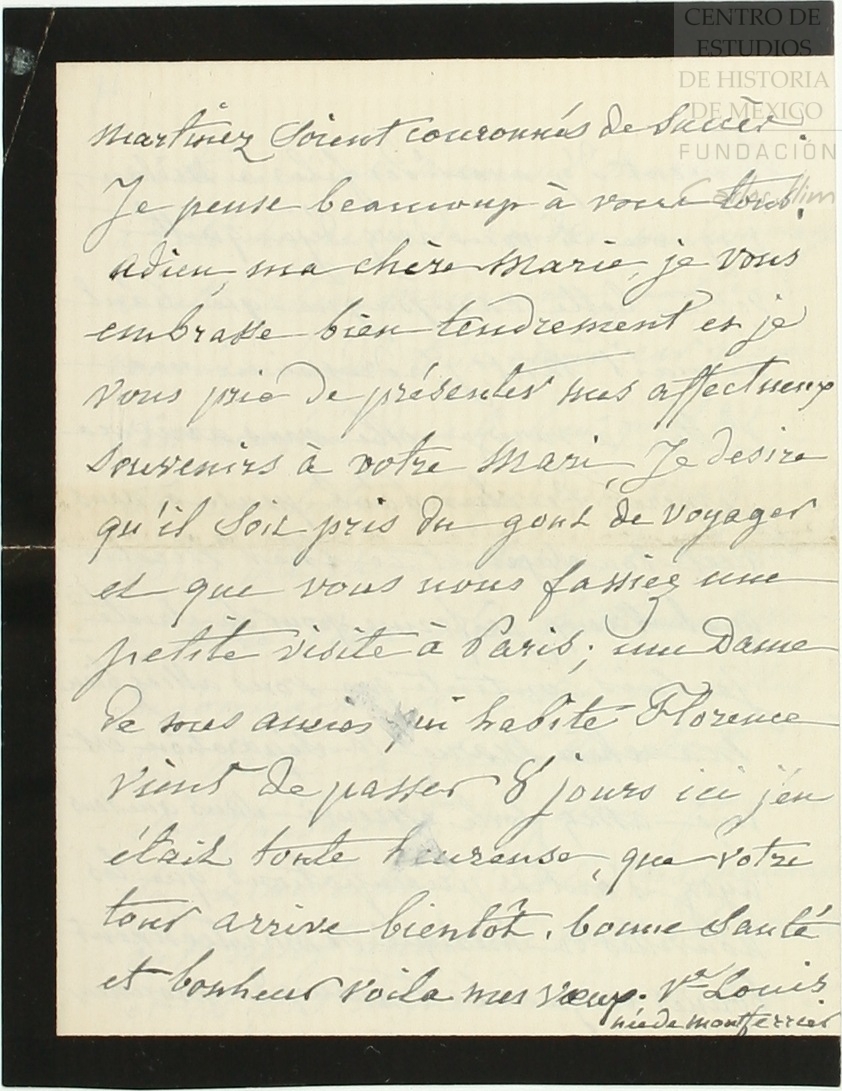 CENTRO DE
ESTUDIOS
DE HISTORIA
DE MEXICO
FUNDACIÓN
martinez soient couronnés de succès.
Je pense beaucoup à vous tous.
adieu, ma chère Marie, je vous
embrasse bien tendrement et je
vous prie de présenter mes affectueux
souvenirs à votre mari, Je desire
qu'il soit pris du gout de voyager
et que vous nous fassiez une
petite visite à Paris; une Dame
de mes amies qui habite Florence
vient de passer 8 jours ici j'en
était toute heureuse, que votre
tour arrive bientôt. bonne Santé
et bonheur voila mes vœux. Vve Louis
née de montferrier